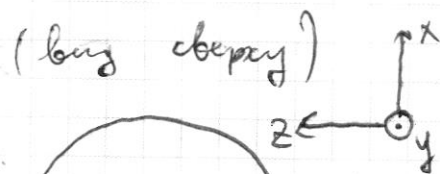 (вид сверху)
x
z
y